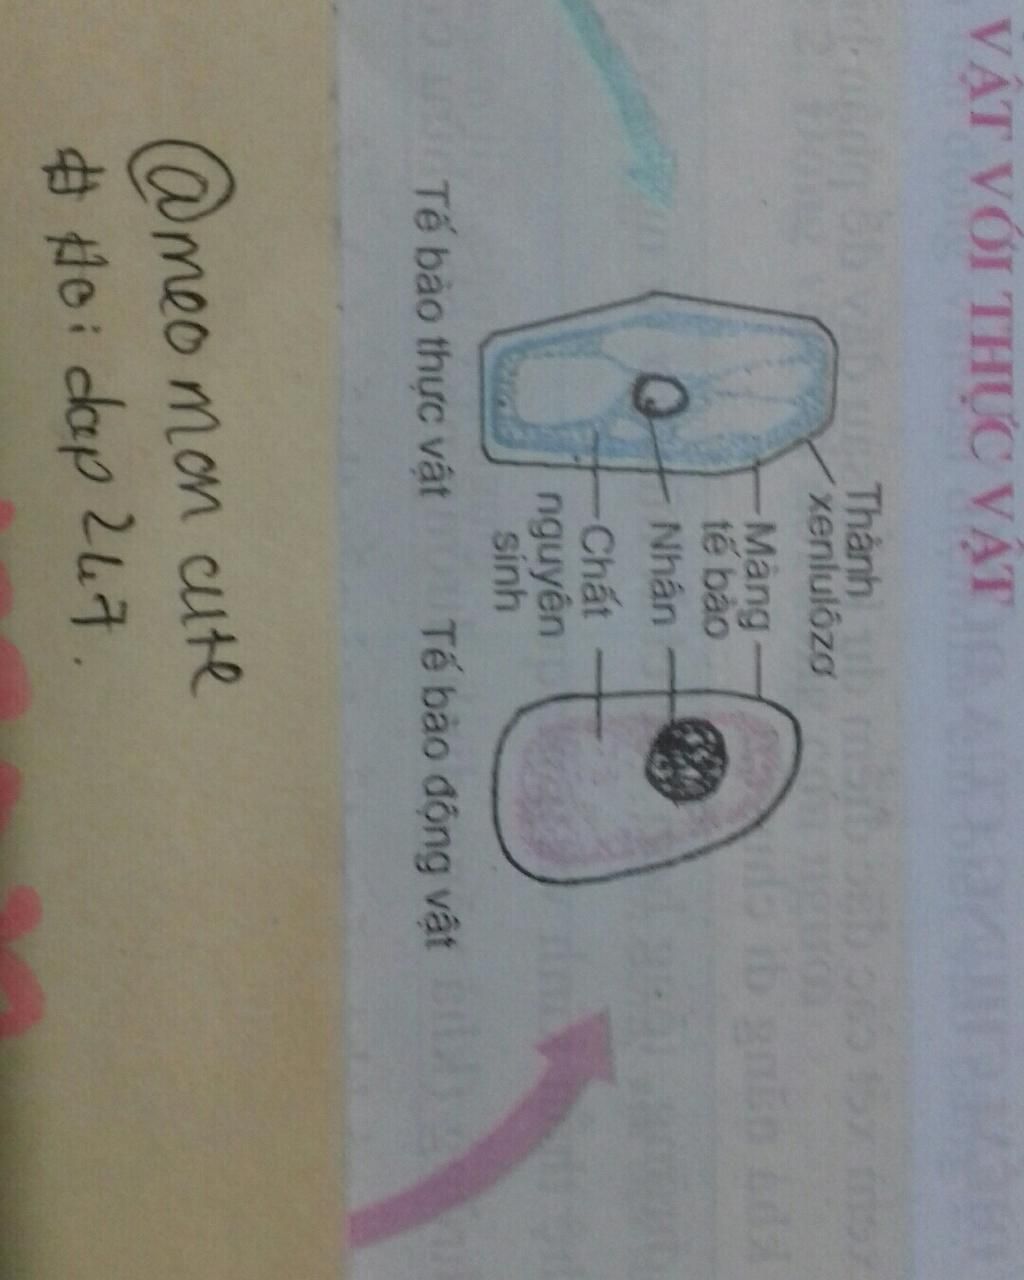 VẬT VỚI THỰC VẬT
Thành
xenlulôzơ
Màng
tế bào
Nhân
Chất
nguyên
sinh
Tế bào thực vật
Tế bào động vật
@meo mon cute
# Hoi dap 247.